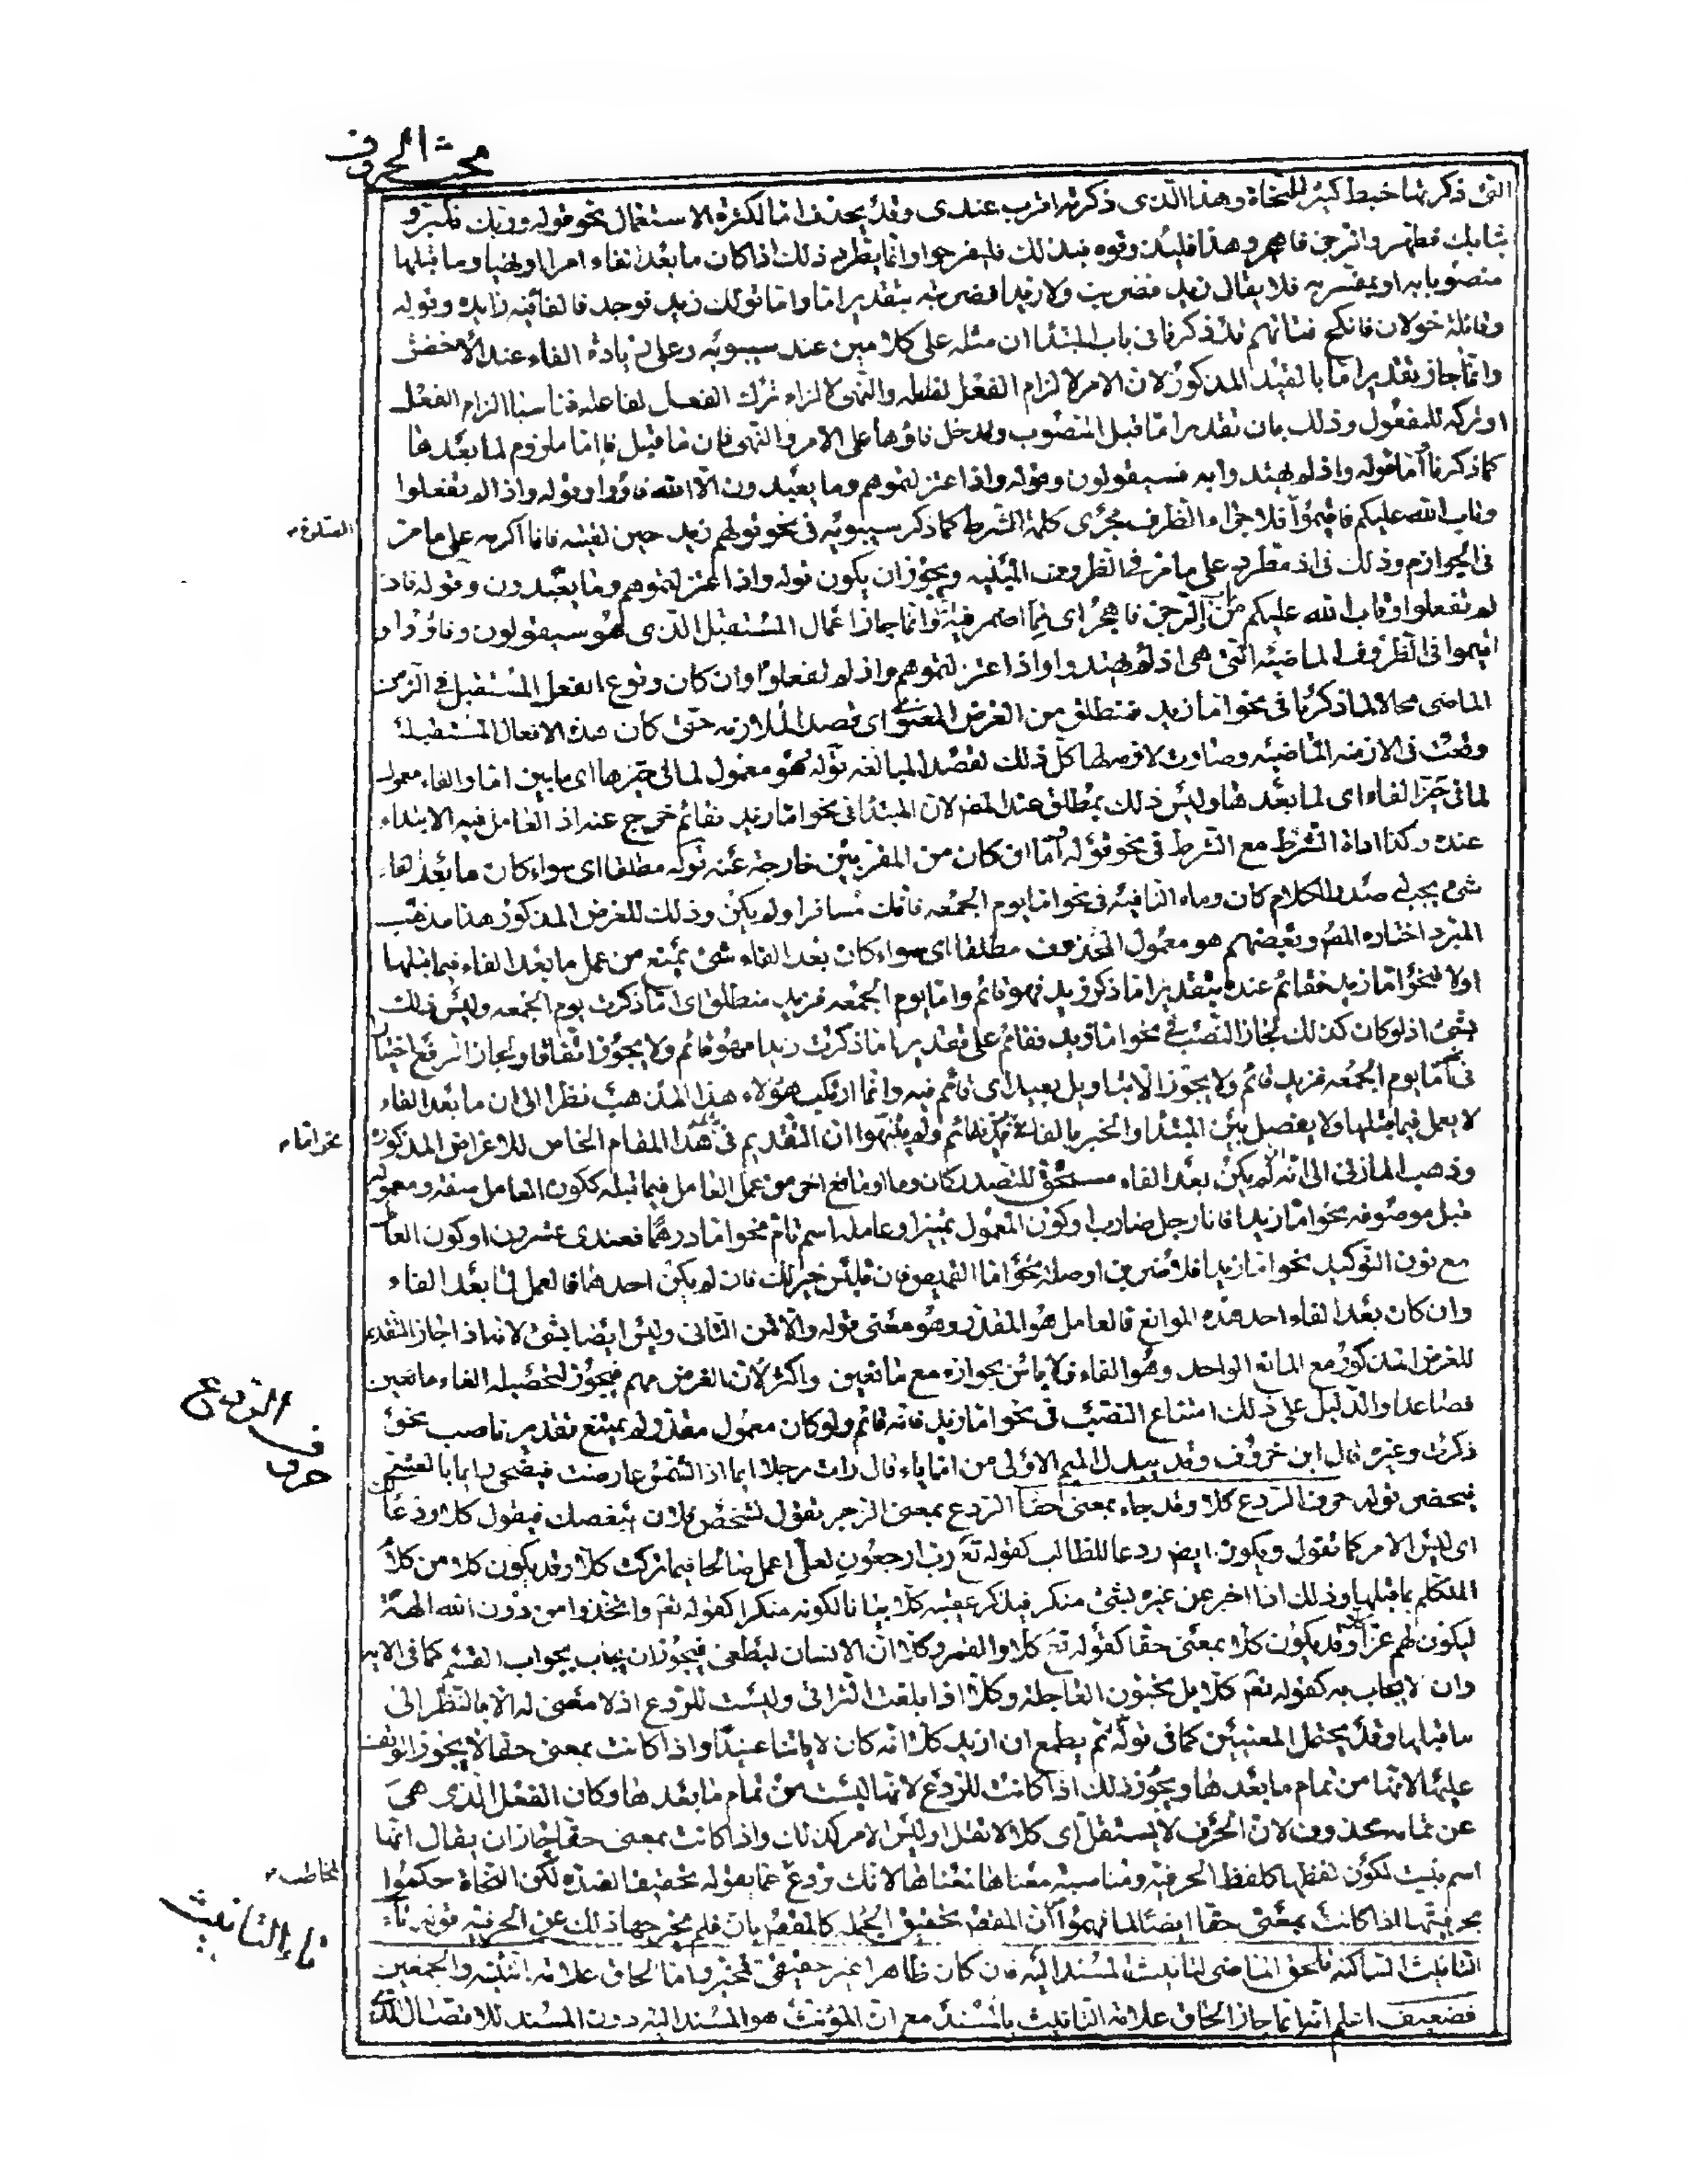 مبحث الحروف
التى ذكرتها خبط كبير للنحاة وهذا الذى ذكرته اقرب عندى وقد يحذف اما لكثرة الاستعمال نحو قوله وربك فكبر و
ثيابك فطهر والرجز فاهجر وهذا فليذوقوه فبذلك فليفرحوا وانما يطرد ذلك اذا كان ما بعد الفاء امرا او نهيا وما قبلها
منصوبا به او بمفسر به فلا يقال زيد فضربت ولا زيدا فضربته بتقدير اما واما قولك زيد فوجد فالفاء فيه زايدة وقوله
وقائلة خولان فانكح فتاتهم قد ذكرنا فى باب المبتدا ان مثله على كلامين عند سيبويه وعلى زيادة الفاء عند الاخفش
وانما جاز تقدير اما بالقيد المذكور لان الامر لالزام الفعل لفاعله والنهى لالزام ترك الفعل لفاعله فناسبا الزام الفعل
او تركه للمفعول وذلك بان تقدير اما قبل المنصوب وتدخل فاؤها على الامر والنهى فان ما قبل فاء اما ملزوم لما بعدها
كما ذكرنا اما قوله واذ لم يهتدوا به فسيقولون وقوله واذ اعتزلتموهم وما يعبدون الا الله فاووا وقوله واذ لم تفعلوا
وتاب الله عليكم فاقيموا فلاجراء الظرف مجرى كلمة الشرط كما ذكر سيبويه فى نحو قولهم زيد حين لقيته فانا اكرمه على ما مر
فى الجوازم وذلك فى اذ مطرد على ما مر فى الظروف المبنيه ويجوز ان يكون قوله واذ اعتزلتموهم وما يعبدون وقوله فاذ
لم تفعلوا وتاب الله عليكم من باب والرجز فاهجر اى مما اضمر فيه اما وانما جاز اعمال المستقبل الذى هو سيقولون وفاووا و
اقيموا فى الظروف الماضيه التى هى اذ لم يهتدوا واذ اعتزلتموهم واذ لم تفعلوا وان كان وقوع الفعل المستقبل فى الزمن
الماضى محالا لما ذكرنا فى نحو اما زيد فمنطلق من الغرض المعنوى اى قصد الملازمه حتى كان هذه الافعال المستقبلة
وقعت فى الازمنه الماضيه وصارت لازمة لها كل ذلك لقصد المبالغه قوله فهو معمول لما فى حيزها اى ما بين اما والفاء معمول
لما فى حيز الفاء اى لما بعدها وليس ذلك بمطلق عند المصـ لان المبتدا فى نحو اما زيد فقائم خرج عنه اذ العامل فيه الابتداء
عنده وكذا اداة الشرط مع الشرط فى نحو قوله اما ان كان من المقربين خارجة عنه قوله مطلقا اى سواء كان ما بعد الفاء
شئ يجب له صدر الكلام كان وماء النافيه فى نحو اما يوم الجمعه فانك مسافر او لم يكن وذلك للغرض المذكور هذا مذهب
المبرد اختاره المصـ وبعضهم هو معمول المحذوف مطلقا اى سواء كان بعد الفاء شئ يمتنع من عمل ما بعد الفاء فيما قبلها
او لا فنحو اما زيد فقائم عنده بتقدير اما ذكر زيد فهو قائم واما يوم الجمعه فزيد منطلق اى اما ذكرت يوم الجمعه وليس ذلك
بشئ اذ لو كان كذلك لجاز النصب فى نحو اما زيد فقائم على تقدير اما ذكرت زيدا فهو قائم ولا يجوز اتفاقا ولجاز الرفع اختيارا
فى اما يوم الجمعه فزيد قائم ولا يجوز الا بتاويل بعيد اى قائم فيه وانما ارتكب هؤلاء هذا المذهب نظرا الى ان ما بعد الفاء
لا يعمل فيما قبلها ولا يفصل بين المبتدا والخبر بالفاء فى زيد فقائم ولم يتنبهوا ان التقديم فى هذا المقام الخاص للاغراض المذكوره
وذهب المازنى الى انه ان لم يكن بعد الفاء مستحق للتصدر كان وما او مانع اخر من عمل العامل فيما قبله ككون العامل صفة ومعموله
قبل موصوفه نحو اما زيدا فانا رجل ضارب او كون المعمول تمييزا وعامله اسم تام نحو اما درهما فعندى عشرون او كون العامل
مع نون التوكيد نحو اما زيدا فلاضربن او صلة نحو اما القميص فان قلبس خير لك فان لم يكن احدهما فالعمل لما بعد الفاء
وان كان بعد الفاء احد هذه الموانع فالعامل هو المقدر وهو معنى قوله والا فمن الثانى وليس ايضا بشئ لانه اذا جاز التقديم
للغرض المذكور مع المانع الواحد وهو الفاء فلا باس بجوازه مع مانعين واكثر لان الغرض مهم فيجوز لتحصيله الغاء مانعين
فصاعدا والدليل على ذلك امتناع النصب فى نحو اما زيد فانه قائم ولو كان معمول مقدر لم يمتنع تقدير ناصب نحو
ذكرت وغيره قال ابن خروف وقد يبدل الميم الاولى من اما ياء قال رات رجلا ايما اذا الشمس عارضت فيضحى وايما بالعشى
فيخصر قوله حرف الردع كلا وقد جاء بمعنى حقا الردع بمعنى الزجر تقول لشخص فلان يبغضك فيقول كلا ردعا لك
اى ليس الامر كما تقول ويكون ايضـ ردعا للطالب كقوله تع رب ارجعون لعلى اعمل صالحا فيما تركت كلا وقد يكون كلا من كلام
المتكلم بما قبلها وذلك اذا اخبر عن غيره بشئ منكر فيذكر عقيبه كلا بيانا لكونه منكرا كقوله تعـ واتخذوا من دون الله الهة
ليكون لهم عزا كلا وقد يكون كلا بمعنى حقا كقوله تع كلا والقمر وكلا ان الانسان ليطغى فيجوز ان يجاب بجواب القسم كما فى الايه
وان لا يجاب به كقوله تعـ كلا بل تحبون العاجلة وكلا اذا بلغت التراقى وليست للردع اذ لا معنى له الا بالنظر الى
ما قبلها وقد يحتمل المعنيين كما فى قوله ثم يطمع ان ازيد كلا انه كان لاياتنا عنيدا واذا كانت بمعنى حقا لا يجوز الوقف
عليها لانها من تمام ما بعدها ويجوز ذلك اذا كانت للردع لانها ليست من تمام ما بعدها وكان الفعل الذى هى
عن تمامه محذوف لان الحرف لا يستقل اى كلا لا تقل او ليس الامر كذلك واذا كانت بمعنى حقا جاز ان يقال انها
اسم بنيت لكون لفظها كلفظ الحرفيه ومناسبة معناها لمعناها لانك تردع عما يقوله تحقيقا لضده لكن النحاة حكموا
بحرفيتها اذا كانت بمعنى حقا ايضا لما فهموا ان المقصـ تحقيق الجملة كالمقصـ بان فلم يخرجها ذلك عن الحرفيه قوله تاء
التانيث الساكنه تلحق الماضى لتانيث المسند اليه فان كان ظاهرا غير حقيقى فمخير واما الحاق علامة التثنيه والجمعين
فضعيف اعلم انه انما جاز الحاق علامة التانيث بالمسند مع ان المؤنث هو المسند اليه دون المسند للاتصال الذى
نحو اما
حرف الردع
المخاطب
تاء التانيث